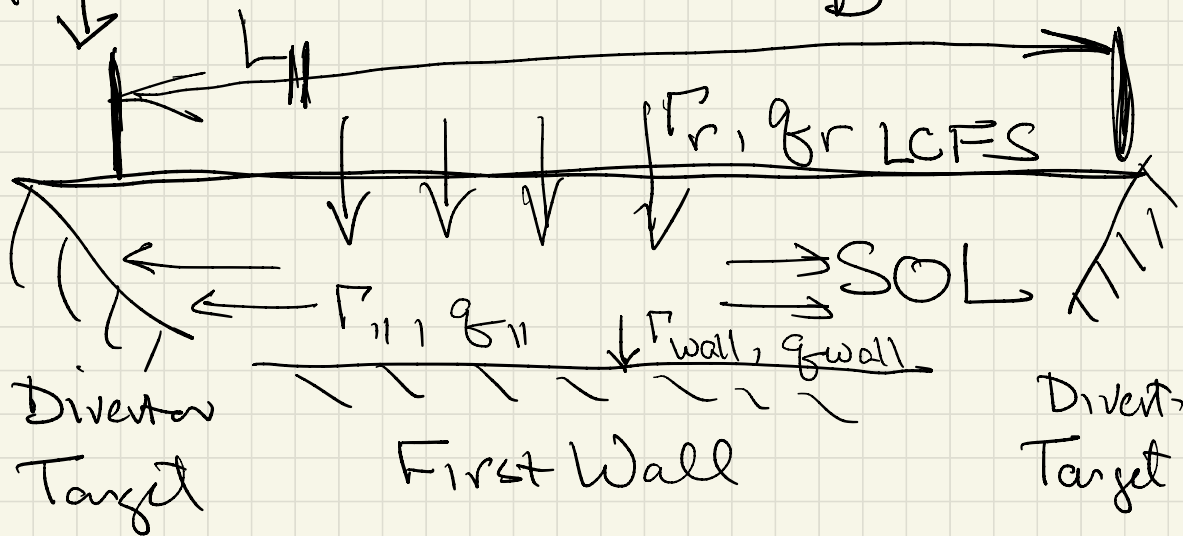 L||
Γr, qr LCFS
SOL
Γ||, q||
Γwall, qwall
Divertor
Target
First Wall
Divert
Target